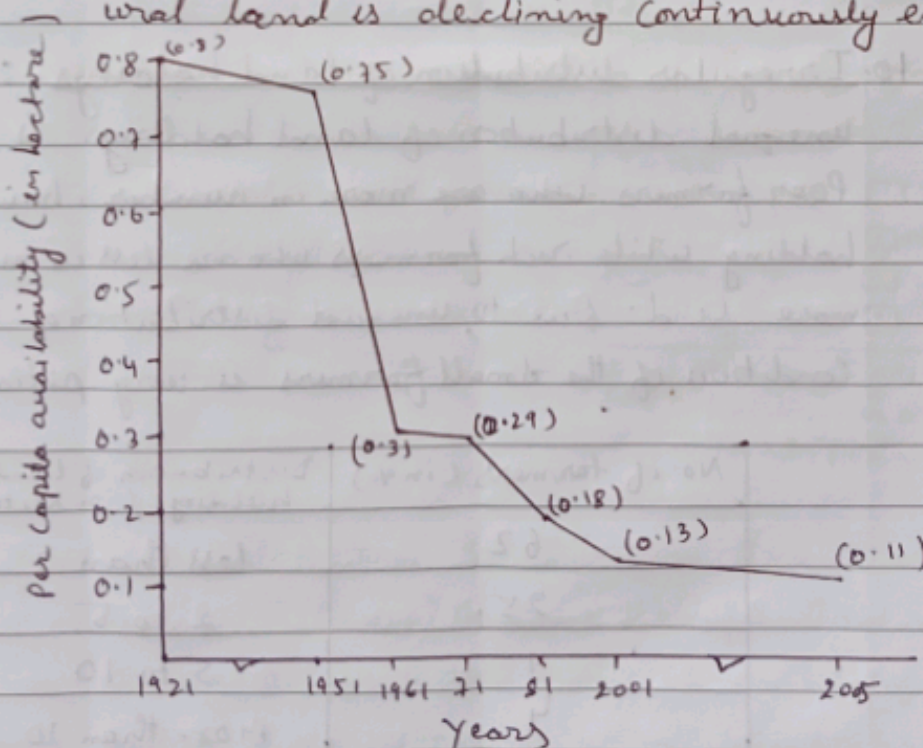 ural land is declining continuously e
per capita availability (in hectare)
0.8
(0.8)
(0.75)
0.7
0.6
0.5
0.4
0.3
(0.3)
(0.29)
0.2
(0.18)
(0.13)
(0.11)
0.1
1921 1951 1961 71 81 2001 2005
Years